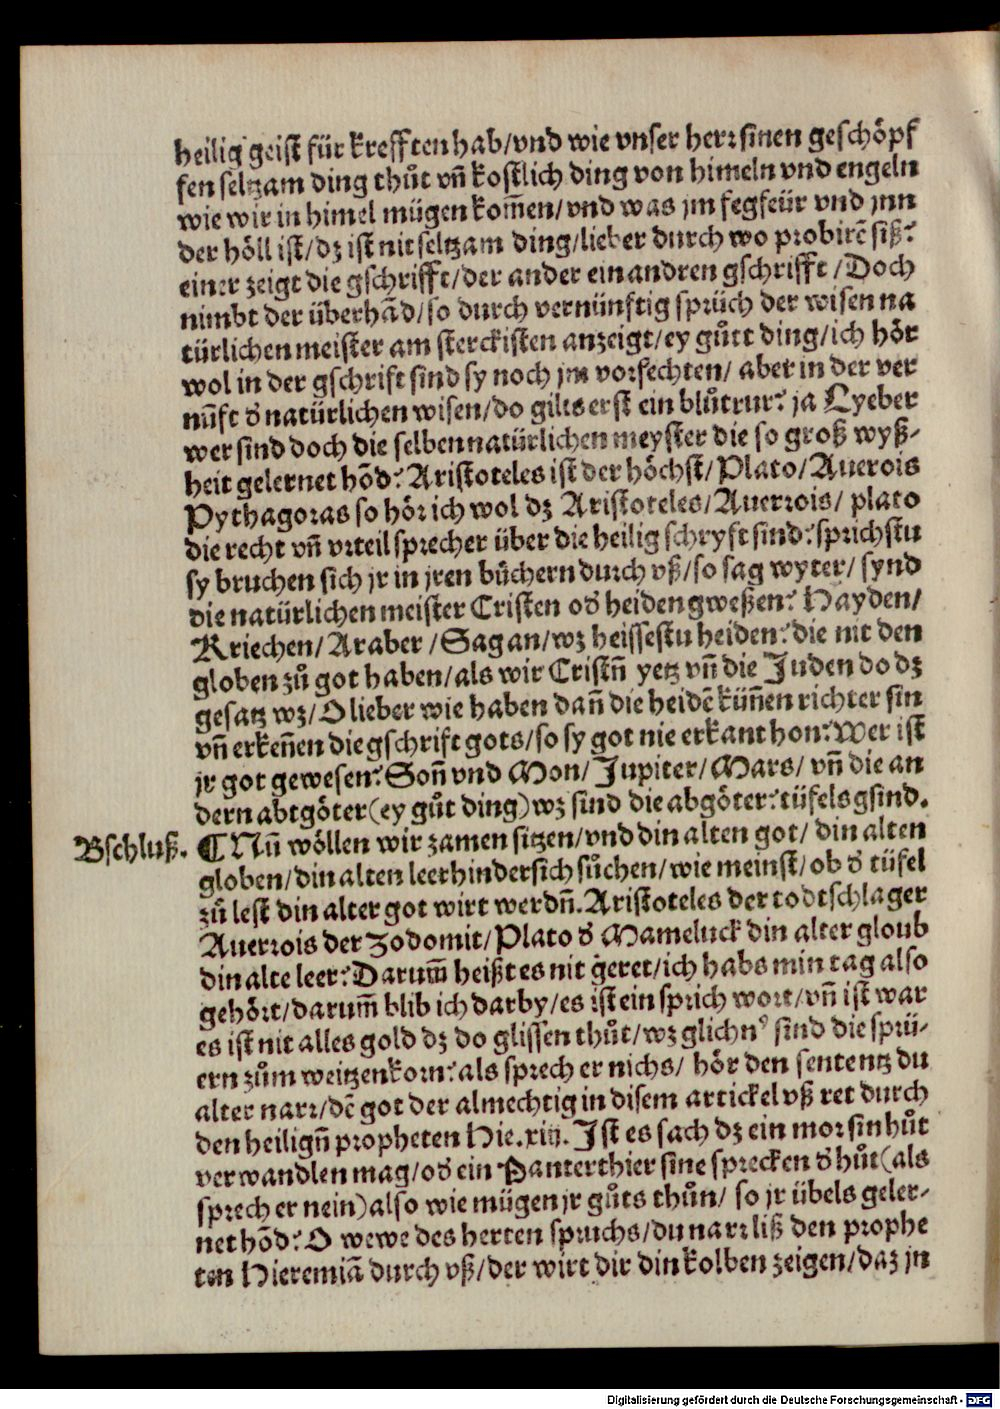 heilig geist für krefften hab/vnd wie vnser herr sinen geschöpf
fen seltzam ding thůt vñ kostlich ding von himeln vnd engeln
wie wir in himel mügen kom̃en/vnd was jm fegfeür vnd jnn
der höll ist/dz ist nit seltzam ding/lieber durch wo probirẽ siß?
einer zeigt die gschrifft/der ander ein andren gschrifft /Doch
nimbt der überhãd/so durch vernünftig sprüch der wisen na
türlichen meister am sterckisten anzeigt/ey gůtt ding/ich hör
wol in der gschrift sind sy noch jm vorfechten/ aber in der ver
nũft ď natürlichen wisen/do gilts erst ein blůtrur? ja Lyeber
wer sind doch die selben natürlichen meyster die so groß wyß-
heit gelernet hõd? Aristoteles ist der höchst/Plato/Auerois
Pythagoras so hör ich wol dz Aristoteles/Auerrois/ plato
die recht vñ vrteil sprecher über die heilig schryft sind? sprichstu
sy bruchen sich jr in jren bůchern durch vß/so sag wyter/ synd
die natürlichen meister Cristen oď heiden gweßen? Hayden/
Kriechen/Araber /Sagan/wz heissestu heiden? die nit den
globen zů got haben/als wir Cristñ yetz vñ die Juden do dz
gesatz wz/O lieber wie haben dañ die heidẽ küñen richter sin
vñ erkeñen die gschrift gots/so sy got nie erkant hon? Wer ist
jr got gewesen? Soñ vnd Mon/Jupiter/Mars/ vñ die an
dern abtgöter(ey gůt ding)wz sind die abgöter? tüfels gsind.
Bschluß. ¶Nũ wöllen wir zamen sitzen/vnd din alten got/ din alten
globen/din alten leer hindersich sůchen/wie meinst/ob ď tüfel
zů lest din alter got wirt werdñ. Aristoteles der todtschlager
Auerrois der Zodomit/Plato ď Mameluck din alter gloub
din alte leer? Darum̃ heißt es nit geret/ich habs min tag also
gehört/darum̃ blib ich darby/es ist ein sprich wort/vñ ist war
es ist nit alles gold dz do glissen thůt/wz glichnꝰ sind die sprü-
ern zům weitzenkorn? als sprech er nichs/ hör den sententz du
alter narr/dẽ got der almechtig in disem artickel vß ret durch
den heiligñ propheten Hie.xiij. Ist es sach dz ein mor sin hůt
verwandlen mag/oď ein Panterthier sine sprecken ď hůt(als
sprech er nein)also wie mügen jr gůts thůn/ so jr übels geler-
net hõd? O wewe des herten spruchs/du narr liß den prophe
ten Hieremiã durch vß/der wirt dir din kolben zeigen/daz jn
Digitalisierung gefördert durch die Deutsche Forschungsgemeinschaft - DFG